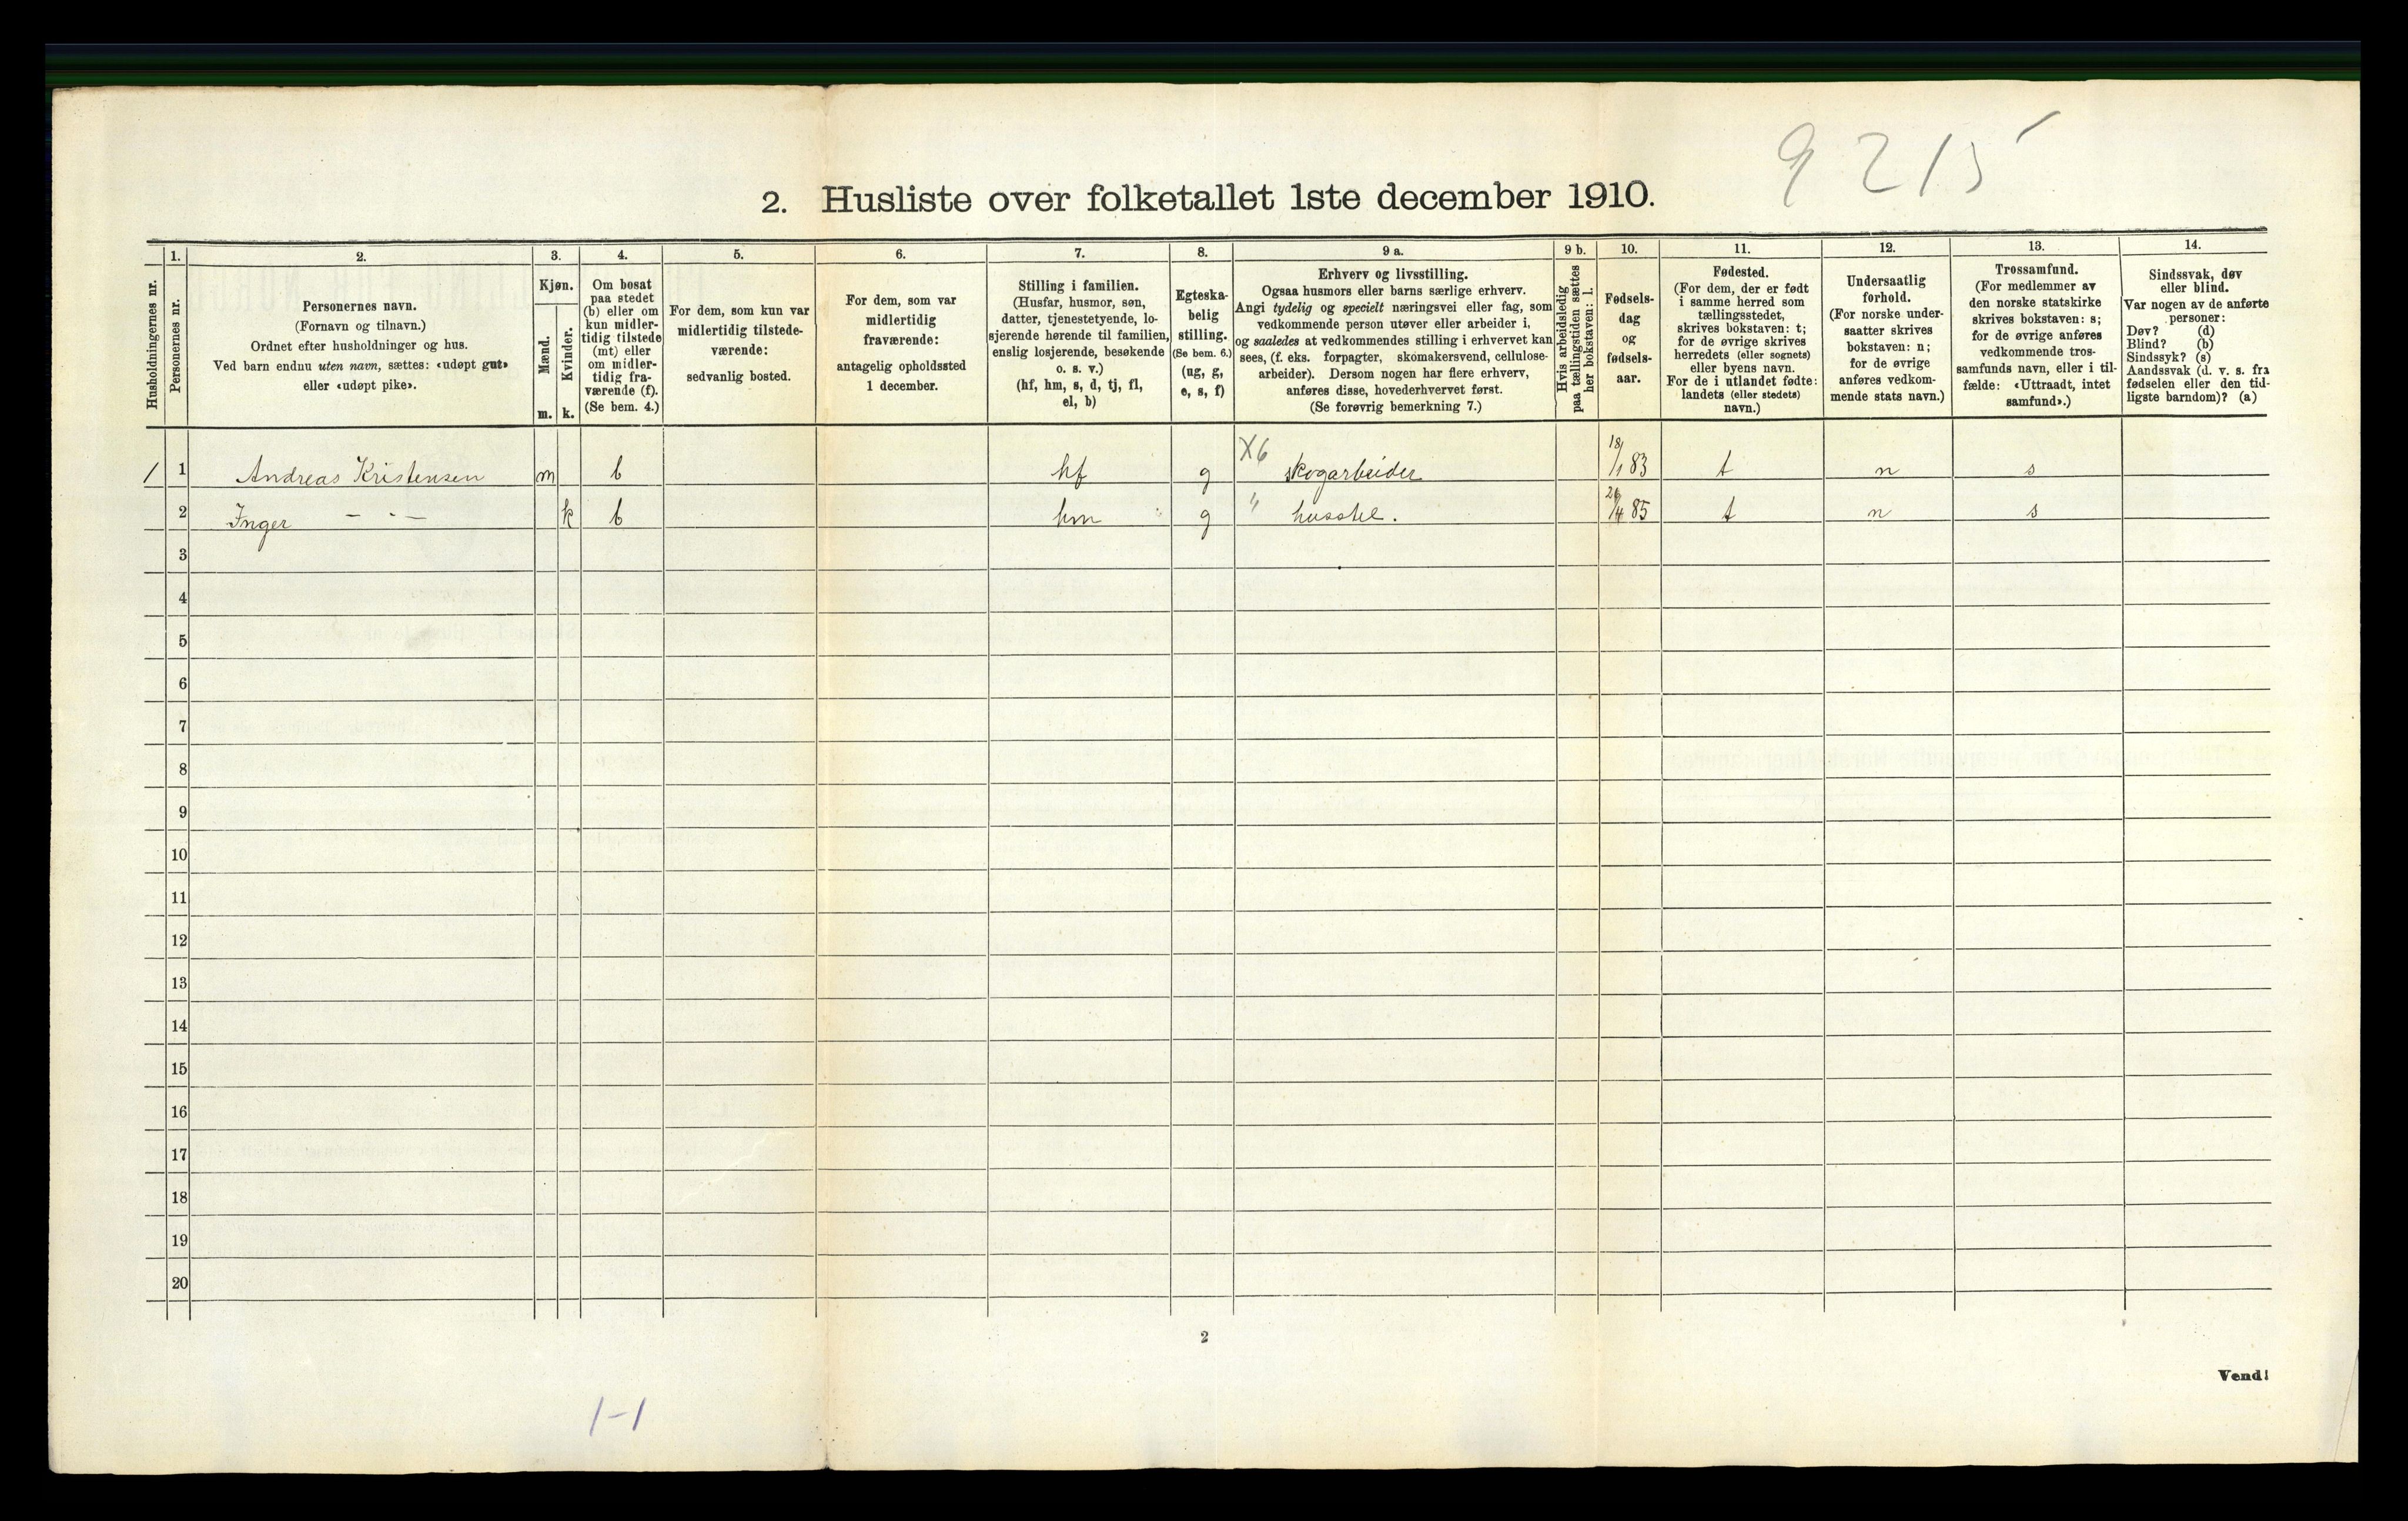 9 2 15
2. Husliste over folketallet 1ste december 1910.
Husholdningernes nr.
1.
Personernes nr.
2.
Personernes navn.
(Fornavn og tilnavn.)
Ordnet efter husholdninger og hus.
Ved barn endnu uten navn, sættes: «udøpt gut»
eller «udøpt pike».
3.
Kjøn.
Mænd.
m.
Kvinder.
k.
4.
Om bosat
paa stedet
(b) eller om
kun midler-
tidig tilstede
(mt) eller
om midler-
tidig fra-
værende (f).
(Se bem. 4.)
5.
For dem, som kun var
midlertidig tilstede-
værende:
sedvanlig bosted.
6.
For dem, som var
midlertidig
fraværende:
antagelig opholdssted
1 december.
7.
Stilling i familien.
(Husfar, husmor, søn,
datter, tjenestetyende, lo-
sjerende hørende til familien,
enslig losjerende, besøkende
o. s. v.)
(hf, hm, s, d, tj, fl,
el, b)
8.
Egteska-
belig
stilling.
(Se bem. 6.)
(ug, g,
e, s, f)
9 a.
Erhverv og livsstilling.
Ogsaa husmors eller barns særlige erhverv.
Angi tydelig og specielt næringsvei eller fag, som
vedkommende person utøver eller arbeider i,
og saaledes at vedkommendes stilling i erhvervet kan
sees, (f. eks. forpagter, skomakersvend, cellulose-
arbeider). Dersom nogen har flere erhverv,
anføres disse, hovederhvervet først.
(Se forøvrig bemerkning 7.)
9 b.
Hvis arbeidsledig
paa tællingstiden sættes
her bokstaven: l.
10.
Fødsels-
dag
og
fødsels-
aar.
11.
Fødested.
(For dem, der er født
i samme herred som
tællingsstedet,
skrives bokstaven: t;
for de øvrige skrives
herredets (eller sognets)
eller byens navn.
For de i utlandet fødte:
landets (eller stedets)
navn.)
12.
Undersaatlig
forhold.
(For norske under-
saatter skrives
bokstaven: n;
for de øvrige
anføres vedkom-
mende stats navn.)
13.
Trossamfund.
(For medlemmer av
den norske statskirke
skrives bokstaven: s;
for de øvrige anføres
vedkommende tros-
samfunds navn, eller i til-
fælde: «Uttraadt, intet
samfund».)
14.
Sindssvak, døv
eller blind.
Var nogen av de anførte
personer:
Døv? (d)
Blind? (b)
Sindssyk? (s)
Aandssvak (d. v. s. fra
fødselen eller den tid-
ligste barndom)? (a)
1 1 Andreas Kristensen m b hf g X6 skogarbeider 18/1 83 t n s
2 Inger — " — k b hm g " husstel. /4 85 t n s
3
4
5
6
7
8
9
10
11
12
13
14
15
16
17
18
19
20
2
Vend!
1-1